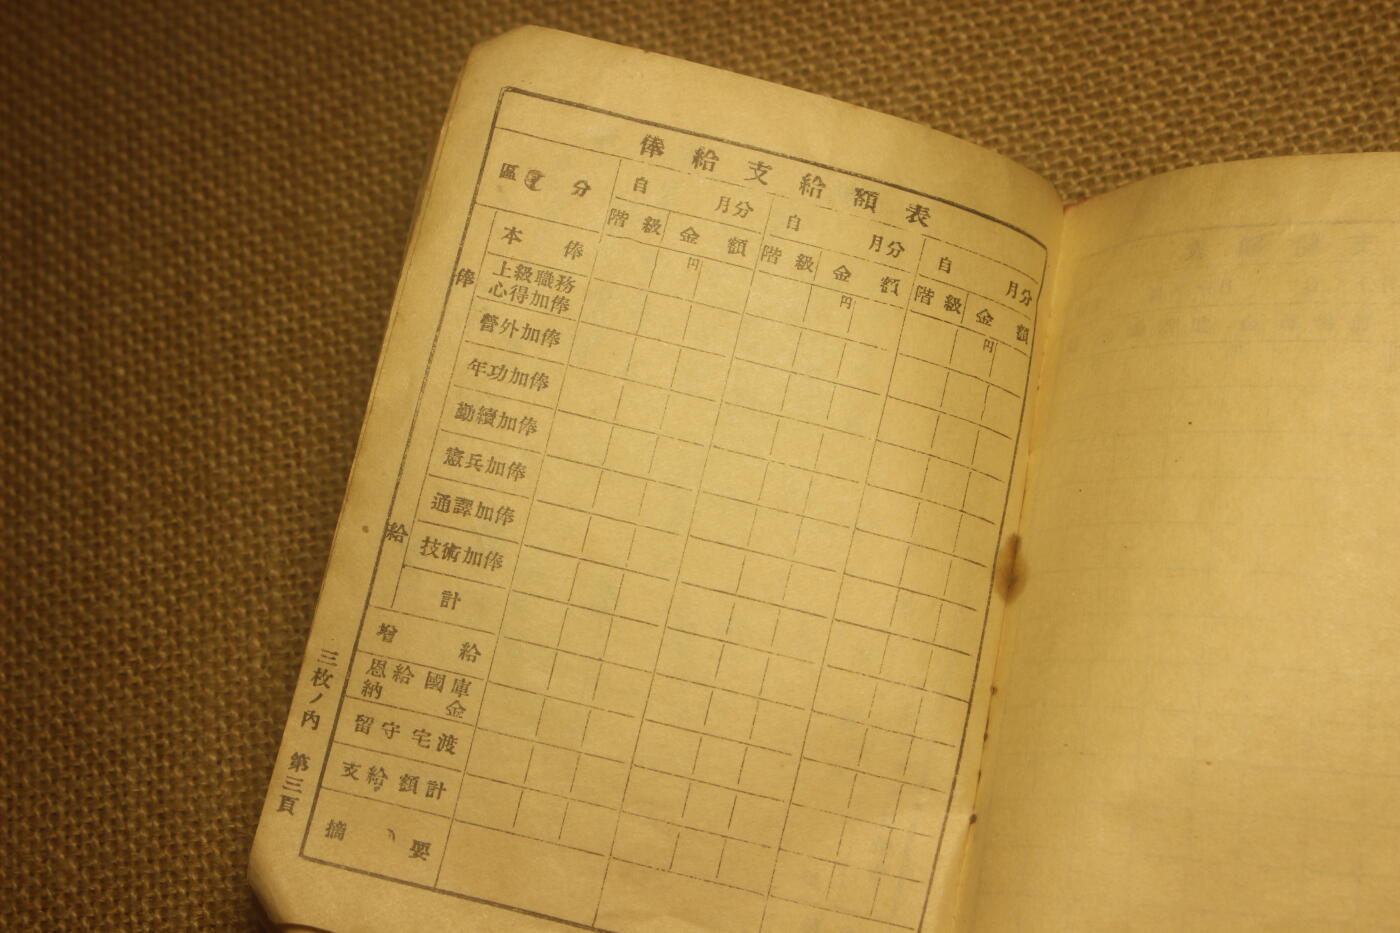 俸給支給額表
區分 自 月分 自 月分 自 月分
階級 金額 階級 金額 階級 金額
円 円 円
俸給
本俸
上級職務
心得加俸
營外加俸
年功加俸
勤續加俸
憲兵加俸
通譯加俸
技術加俸
計
增給
恩給國庫
納金
留守宅渡
支給額計
摘要
三枚ノ內 第三頁